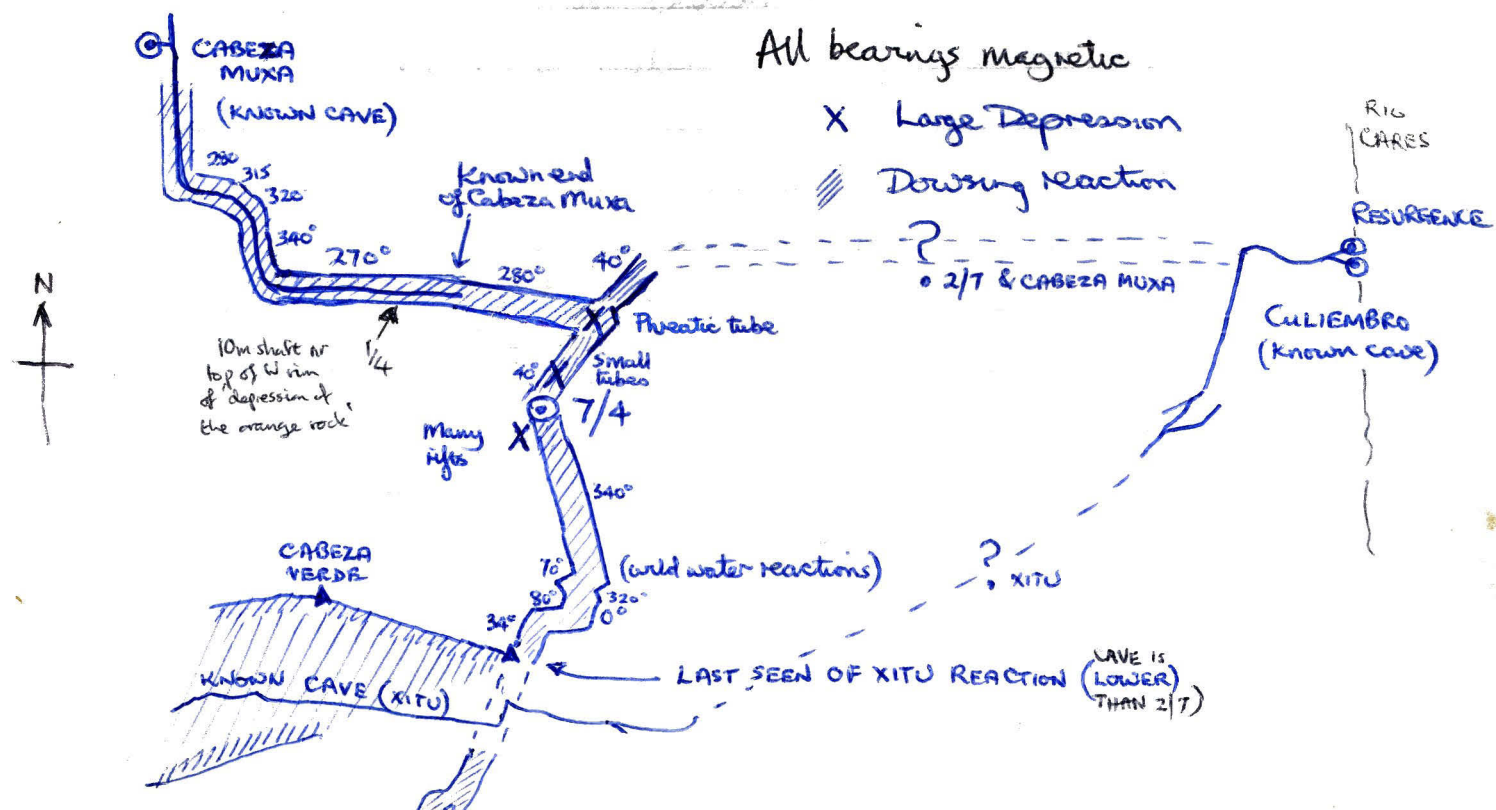 CABEZA
MUXA
(KNOWN CAVE)
All bearings magnetic
X Large Depression
Dowsing reaction
RIO
CARES
RESURGENCE
280
315
320
340°
270°
Known end
of Cabeza Muxa
280°
40°
?
2/T & CABEZA MUXA
CULIEMBRO
(Known cave)
N
10m shaft nr
top of W rim
of 'depression of
the orange rock'
1/4
X
Phreatic tube
40°
X
Small
tubes
7/4
Many
rifts
X
340°
CABEZA
VERDE
70°
(wild water reactions)
80°
320°
0°
34°
?
XITU
KNOWN CAVE (XITU)
LAST SEEN OF XITU REACTION (CAVE IS
LOWER
THAN 2/T)